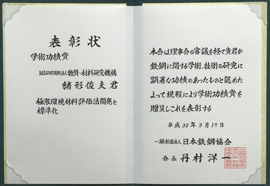 表彰状
学術功績賞
国立研究開発法人物質・材料研究機構
緒形俊夫君
極限環境材料評価法開発と
標準化
本会は理事会の審議を経て貴君が
鉄鋼に関する学術、技術の研究に
顕著な功績のあったものと認めた
よって規程により学術功績賞を
贈呈しこれを表彰する
平成30年3月19日
一般社団法人日本鉄鋼協会
会長 丹村洋一